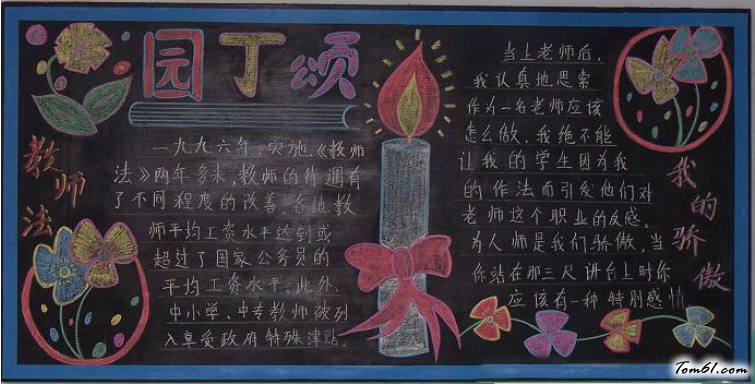 园丁颂
教师法
一九九六年,实施《教师
法》两年多来,教师的待遇有
了不同程度的改善。各地教
师平均工资水平达到或
超过了国家公务员的
平均工资水平。此外,
中小学、中专教师被列
入享受政府特殊津贴。
当上老师后,
我认真地思索
作为一名老师应该
怎么做,我绝不能
让我的学生因为我
的作法而引发他们对
老师这个职业的反感。
为人师是我们骄傲,当
你站在那三尺讲台上时你
应该有一种特别感情
我的骄傲
Tom61.com